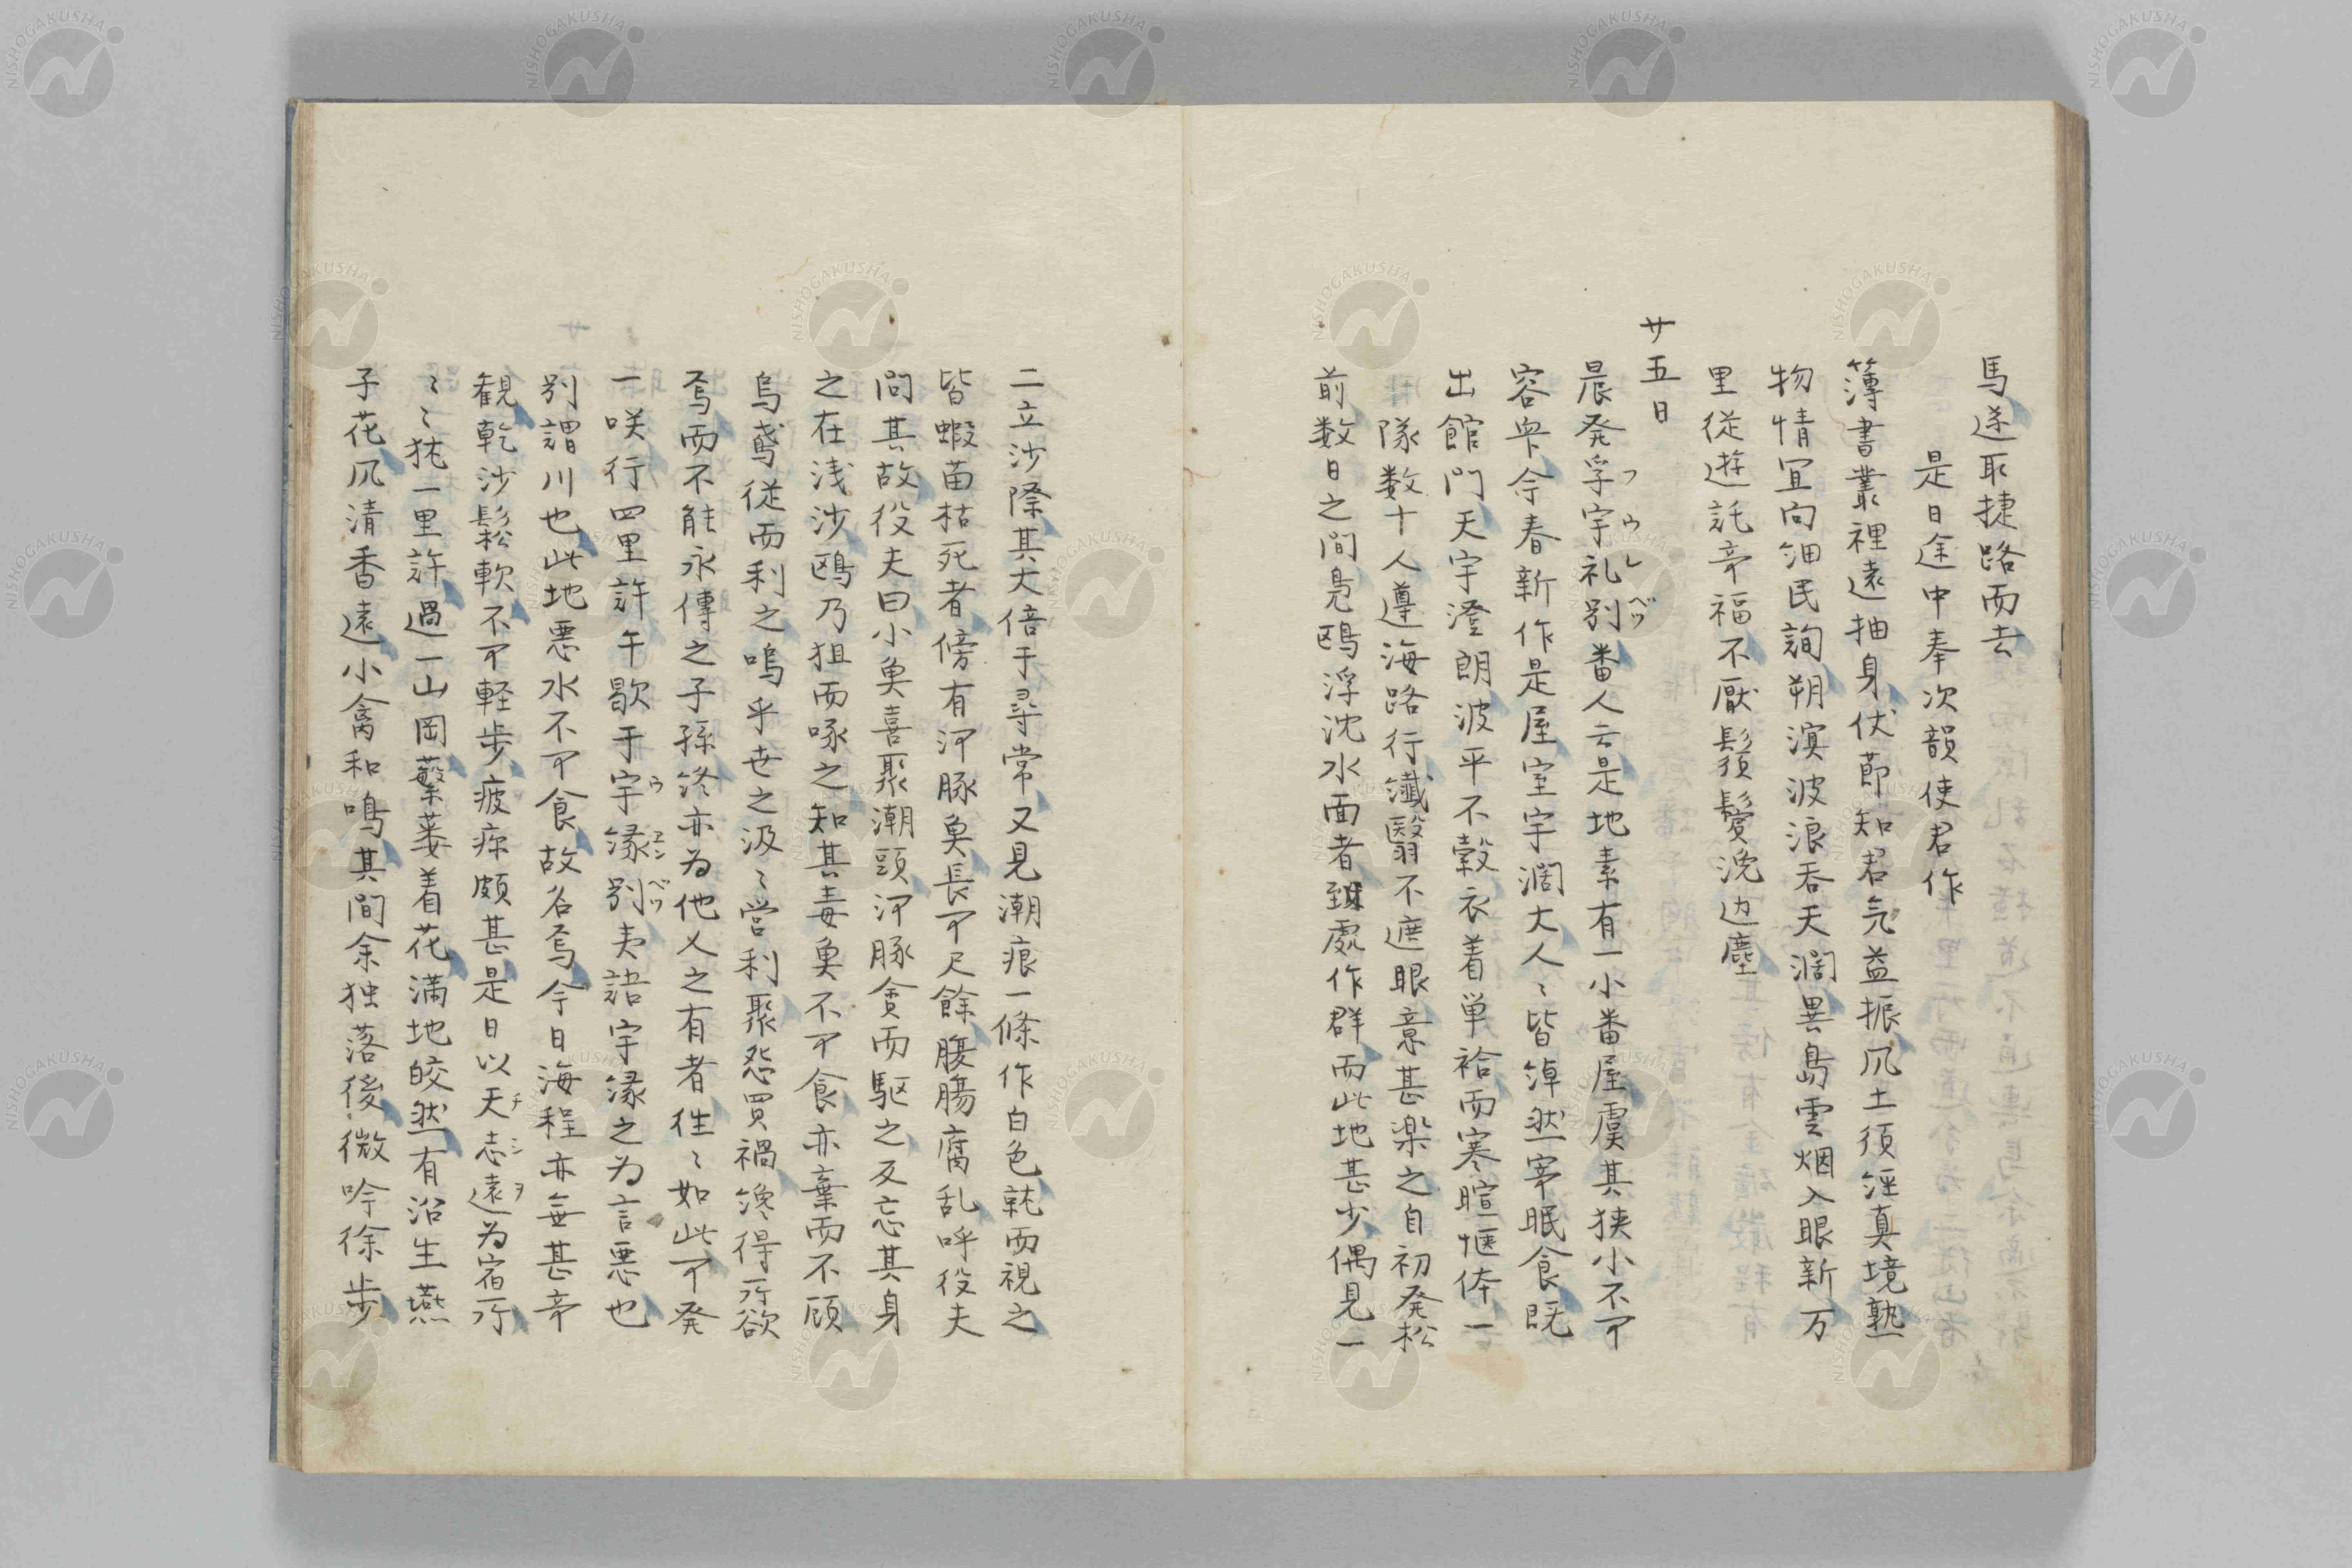 馬遂取捷路而去
是日途中奉次韻使君作
簿書叢裡遠抽身伏節知君気益振凨土須経真境熟
物情宜向細民詢朔溟波浪呑天濶異島雲烟入眼新万
里従遊託帝福不厭鬚鬢浼边塵
廿五日
晨発孚宇礼別番人云是地素有一小番屋虞其狭小不可
フウレベツ
容衆今春新作是屋室宇濶大人〻皆綽然寧眠食既
出館門天宇澄朗波平不縠衣着単袷而寒暄愜体一
隊数十人遵海路行纎翳不遮眼意甚楽之自初発松
前数日之間鳧鴎浮沈水面者到處作群而此地甚少偶見一
二立沙際其大倍于尋常又見潮痕一條作白色就而視之
皆蝦苗枯死者傍有河豚魚長可尺餘腹腸腐乱呼役夫
問其故役夫曰小魚喜聚潮頭河豚貪而駆之反忘其身
之在浅沙鴎乃狙而啄之知其毒魚不可食亦棄而不顧
烏鳶従而利之嗚乎世之汲〻営利聚怨買禍纔得所欲
焉而不能永傳之子孫終亦為他人之有者往〻如此可発
一咲行四里許午歇于宇縁別夷語宇縁之為言悪也
ウエンベツ
別謂川也此地悪水不可食故名焉今日海程亦無甚奇
観乾沙鬆軟不可軽歩疲痺頗甚是日以天志遠為宿所
チシヲ
〻〻挑一里許過一山岡蘩蔞着花満地皎然有沿生燕
子花凨清香遠小禽和鳴其間余独落後微吟徐歩